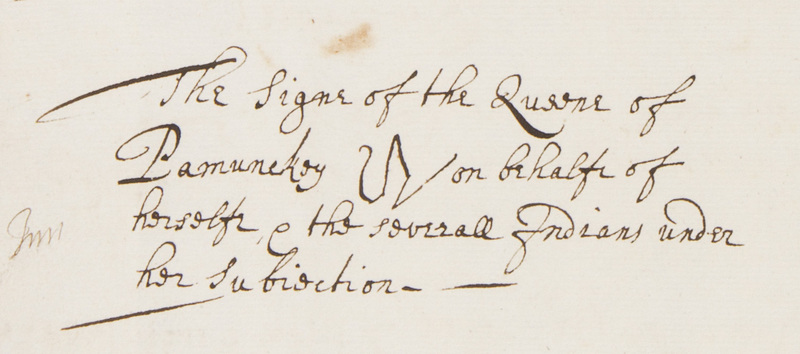 The Signe of the Queene of
Pamunckey on behalfe of
herselfe & the severall Indians under
her Subiection